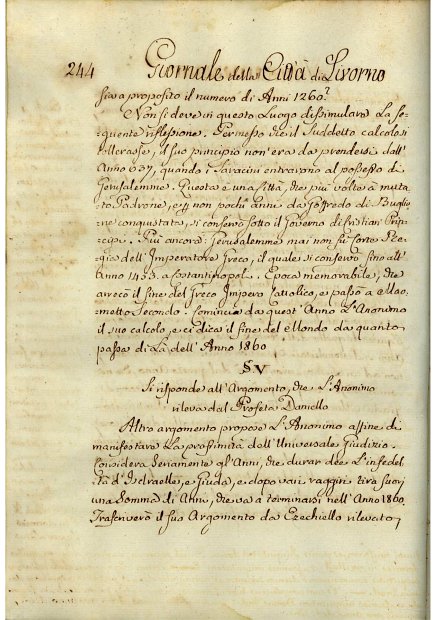 244 Giornale della Città di Livorno
sia a proposito il numero di Anni 1260?
Non si deve in questo Luogo dissimulare La se-
quente riflessione. Permesso che il suddetto calcolo si
il suo principio non era da prendersi dall'
Anno 637, quando i Saracini entrarono al possesso di
Gerusalemme. Questa è una città, che più volte à muta-
to Padrone, e per non pochi anni da Goffredo di Buglio-
ne conquistata, si conservò sotto il Governo di Cristiani Prin-
cipi. Più ancora: Gerusalemme mai non fu Corte Re-
gia dell'Imperatore Greco, il quale si conservò sino all'
Anno 1453. a Costantinopoli. Epoca memorabile, che
arrecò il fine del Greco Impero Cattolico, e passò a Mao-
metto Secondo. Comincia da quest'Anno L'Anonimo
il suo calcolo, e ci dica il fine del Mondo da quanto
passa di Là dell'Anno 1860
§V
Si risponde all'Argomento, che L'Anonimo
rileva dal Profeta Daniello
Altro argomento propose L'Anonimo affine di
manifestare La prossimità dell'Universale Giudizio.
Considera seriamente gl'Anni, che durar dee L'infedel-
tà d'Isdraelle, e Giuda, e dopo vari raggiri tira fuori
una Somma di Anni, che va a terminarsi nell'Anno 1860.
Trascriverò il suo Argomento da Ezechiello rilevato